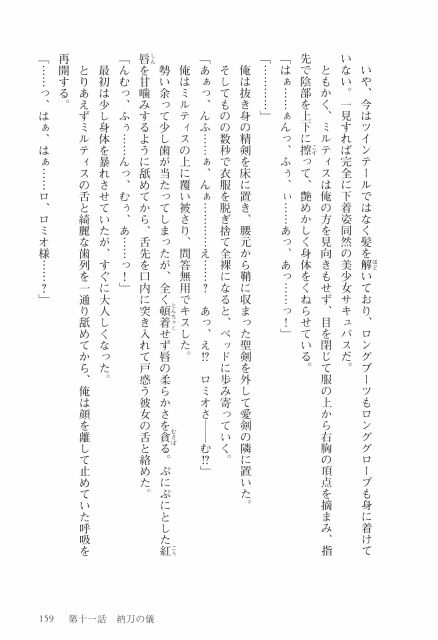 いや、今はツインテールではなく髪を解いており、ロングブーツもロンググローブも身に着けて
いない。一見すれば完全に下着姿同然の美少女サキュバスだ。
ともかく、ミルティスは俺の方を見向きもせず、目を閉じて服の上から右胸の頂点を摘まみ、指
先で陰部を上下に擦って、艶めかしく身体をくねらせている。
「はぁ……ぁんっ、ふぅ、ぃ……あっ、あっ……っ！」
「…………」
俺は抜き身の精剣を床に置き、腰元から鞘に収まった聖剣を外して愛剣の隣に置いた。
そしてものの数秒で衣服を脱ぎ捨て全裸になると、ベッドに歩み寄っていく。
「あぁっ、んふ……ぁ、んぁ…………え……？　あっ、え!?　ロミオさ――む!?」
俺はミルティスの上に覆い被さり、問答無用でキスした。
勢い余って少し歯が当たってしまったが、全く頓着せず唇の柔らかさを貪る。ぷにぷにとした紅
唇を甘噛みするように舐めてから、舌先を口内に突き入れて戸惑う彼女の舌と絡めた。
「んむっ、ふぅ……んっ、むぅ、あ……っ！」
最初は少し身体を暴れさせていたが、すぐに大人しくなった。
とりあえずミルティスの舌と綺麗な歯列を一通り舐めてから、俺は顔を離して止めていた呼吸を
再開する。
「……っ、はぁ、はぁ……ロ、ロミオ様……？」
159　第十一話　納刀の儀